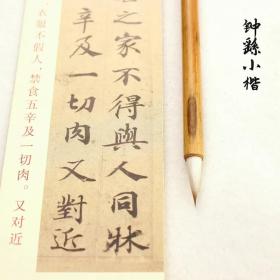 钟繇小楷
之家不得與人同牀
辛及一切肉又對近
衣服不假人，禁食五辛及一切肉。又对近